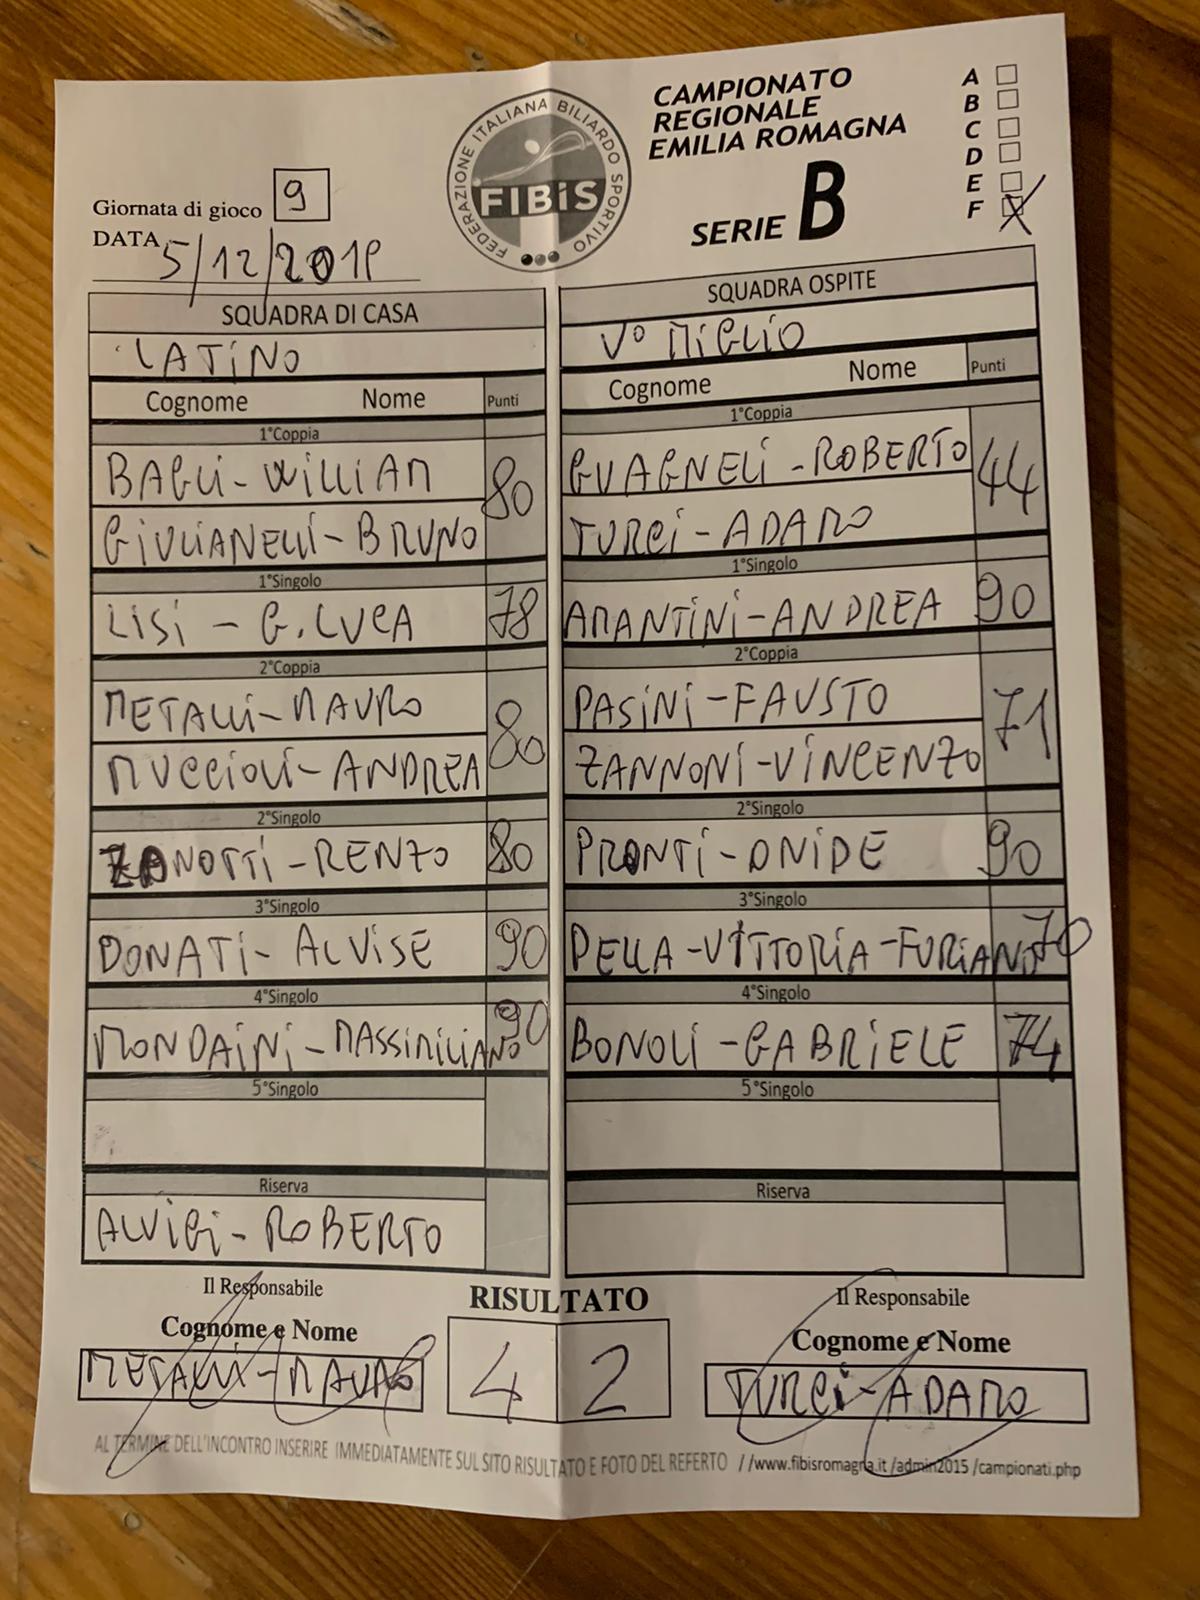 CAMPIONATO
REGIONALE
EMILIA ROMAGNA
SERIE B
A
B
C
D
E
F X
FEDERAZIONE ITALIANA BILIARDO SPORTIVO
FIBiS
Giornata di gioco 9
DATA 5/12/2019
SQUADRA DI CASA
LATINO
Cognome Nome Punti
1°Coppia
BAGLI-WILLIAM 80
GIULIANELLI-BRUNO
1°Singolo
LISI - G.LUCA 78
2°Coppia
METALLI-MAURO 80
MUCCIOLI-ANDREA
2°Singolo
ZANOTTI-RENZO 80
3°Singolo
DONATI-ALVISE 90
4°Singolo
MONDAINI-MASSIMILIANO 90
5°Singolo
Riserva
ALVIGI-ROBERTO
SQUADRA OSPITE
V° MIGLIO
Cognome Nome Punti
1°Coppia
GUAGNELI-ROBERTO 44
TURCI-ADAMO
1°Singolo
AMANTINI-ANDREA 90
2°Coppia
PASINI-FAUSTO 71
ZANNONI-VINCENZO
2°Singolo
PRONTI-ONIDE 90
3°Singolo
DELLA-VITTORIA-FURIANO 70
4°Singolo
BONOLI-GABRIELE 74
5°Singolo
Riserva
Il Responsabile
Cognome e Nome
METALLI-MAURO
RISULTATO
4 2
Il Responsabile
Cognome e Nome
TURCI-ADAMO
AL TERMINE DELL'INCONTRO INSERIRE IMMEDIATAMENTE SUL SITO RISULTATO E FOTO DEL REFERTO //www.fibisromagna.it /admin2015 /campionati.php